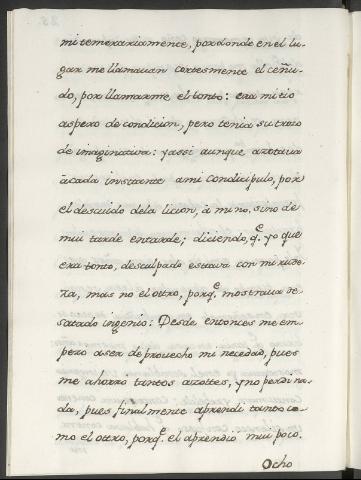 mitemerariamente, por donde en el lu-
gar me llamauan cortesmente el ceñu-
do, por llamarme el tonto: era mi tio
aspero de condicion, pero tenia su trato
de imaginatiua: y assi aunque azotaua
à cada instante a mi condicipulo, por
el descuido de la licion, à mi no, sino de
mui tarde en tarde; diciendo, q.e yo que
era tonto, desculpado estaua con mi rude-
za, mas no el ottro, porq.e mostraua de-
satado ingenio: Desde entonces me em-
pezo a ser de prouecho mi necedad, pues
me ahorro tantos azottes, y no perdi na-
da, pues finalmente aprendi tanto co-
mo el ottro, porq.e el aprendio mui poco.
Ocho